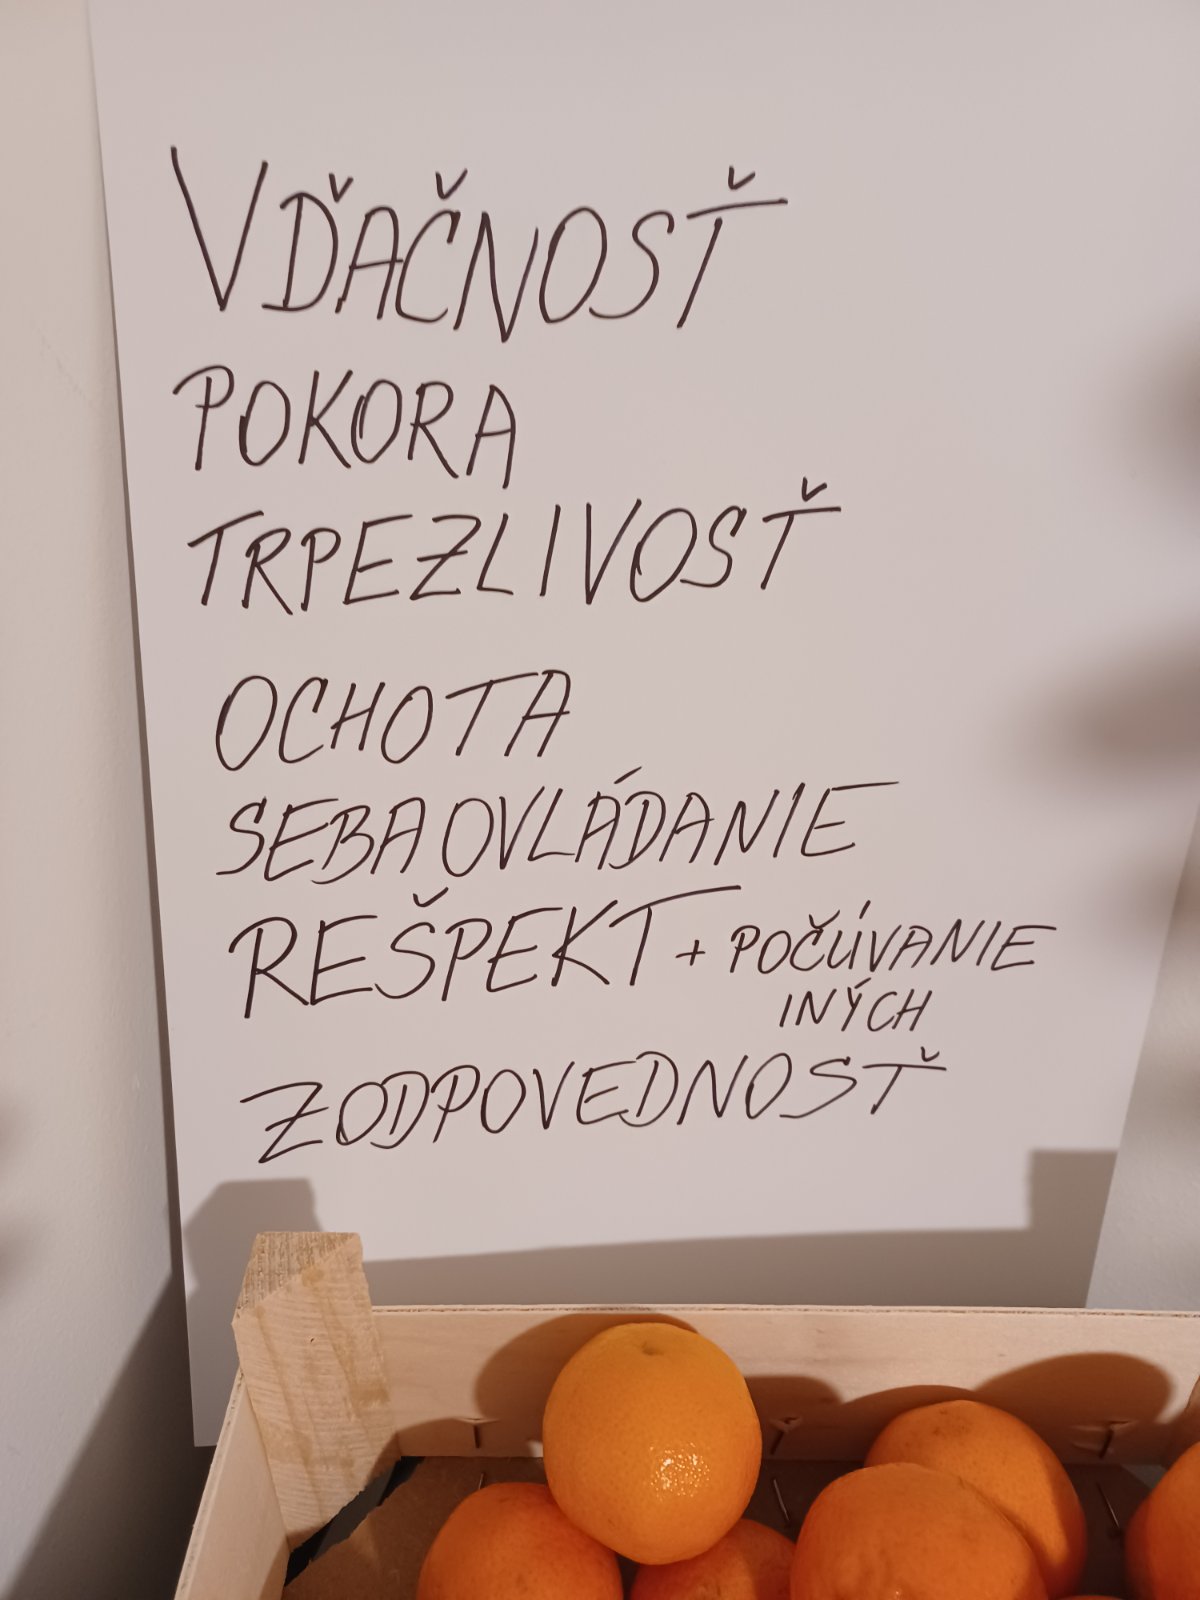 VĎAČNOSŤ
POKORA
TRPEZLIVOSŤ
OCHOTA
SEBAOVLÁDANIE
REŠPEKT + POČÚVANIE
INÝCH
ZODPOVEDNOSŤ